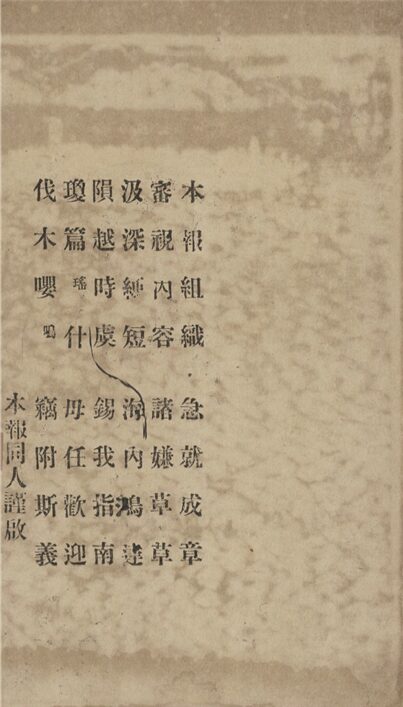 本報組織　急就成章
審視內容　諸嫌草草
汲深綆短　海內鴻達
隕越時虞　錫我指南
瓊篇瑤什　毋任歡迎
伐木嚶鳴　竊附斯義
本報同人謹啟